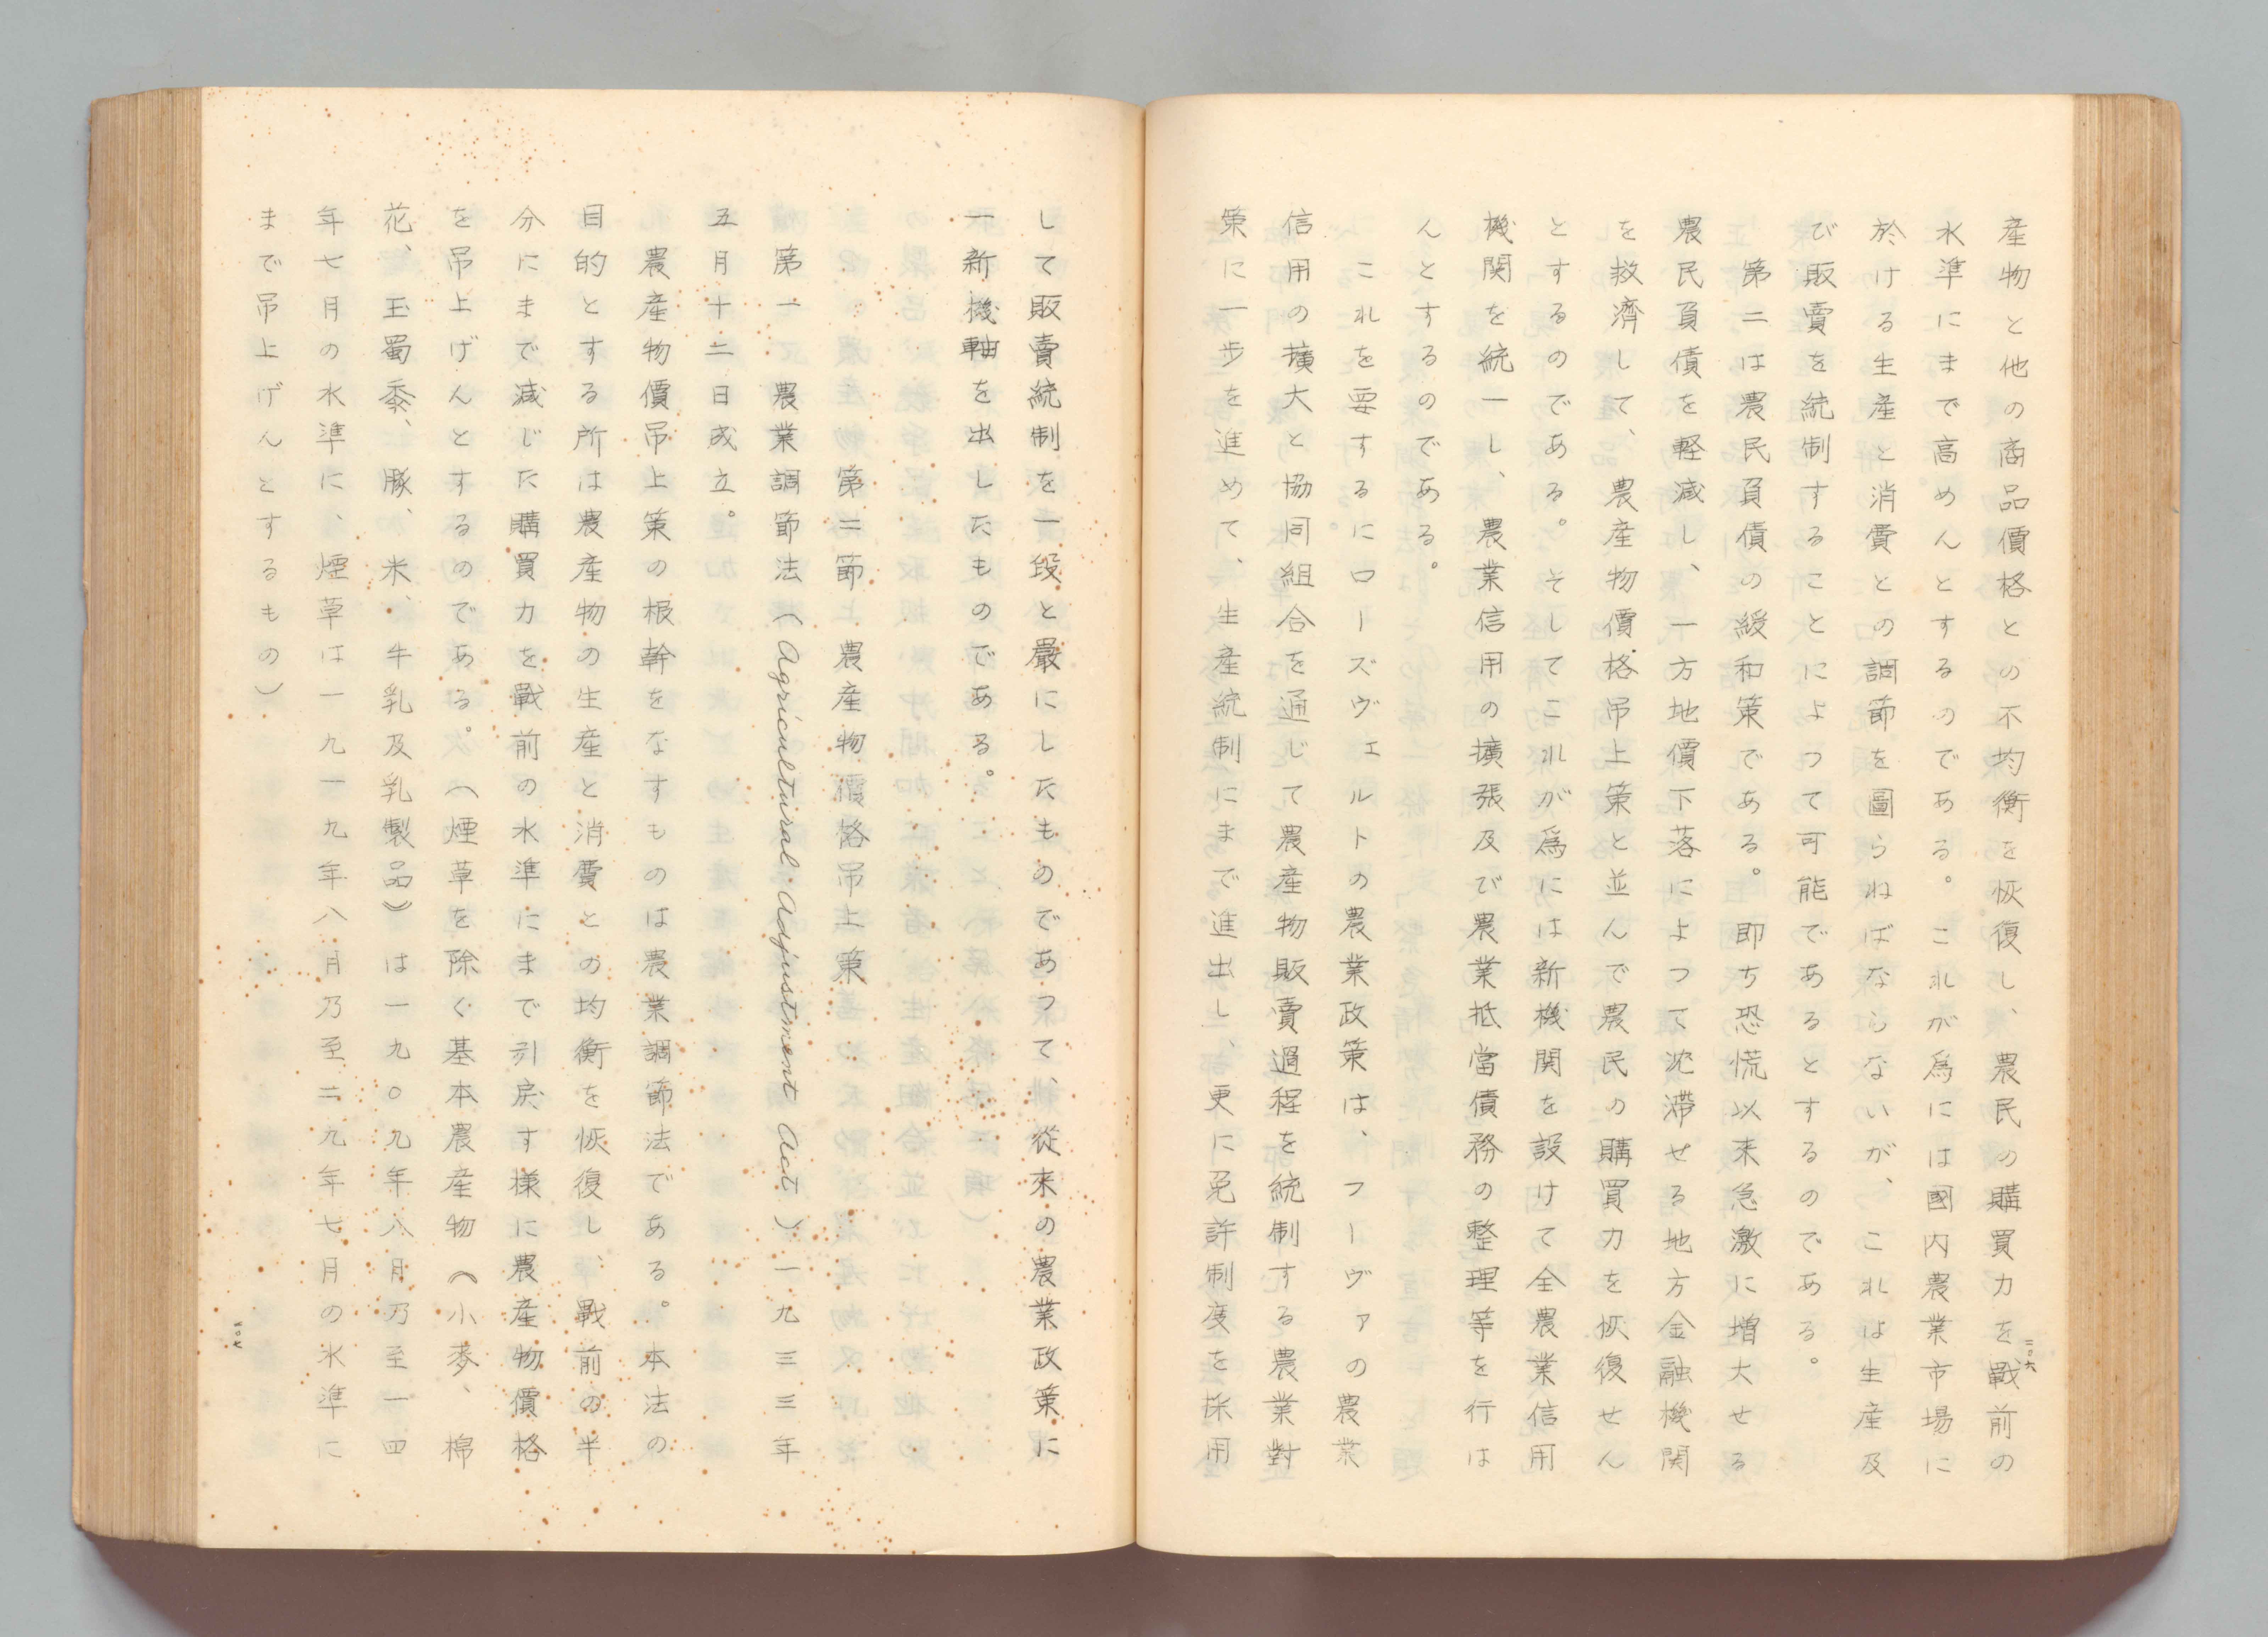 産物と他の商品價格との不均衡を恢復し、農民の購買力を戰前の
水準にまで高めんとするのである。これが爲には國内農業市場に
於ける生産と消費との調節を圖らねばならないが、これは生産及
び販賣を統制することによつて可能であるとするのである。
第二は農民負債の緩和策である。即ち恐慌以来急激に増大せる
農民負債を軽減し、一方地價下落によつて沈滞せる地方金融機関
を救濟して、農産物價格吊上策と並んで農民の購買力を恢復せん
とするのである。そしてこれが爲には新機関を設けて全農業信用
機関を統一し、農業信用の擴張及び農業抵當債務の整理等を行は
んとするのである。
これを要するにローズヴェルトの農業政策は、フーヴァの農業
信用の擴大と協同組合を通じて農産物販賣過程を統制する農業對
策に一歩を進めて、生産統制にまで進出し、更に免許制度を採用
二〇六
して販賣統制を一段と嚴にしたものであつて、從來の農業政策に
一新機軸を出したものである。
第二節 農産物價格吊上策
第一 農業調節法（Agricultural Adjustment Act）一九三三年
五月十二日成立。
農産物價吊上策の根幹をなすものは農業調節法である。本法の
目的とする所は農産物の生産と消費との均衡を恢復し、戰前の半
分にまで減じた購買力を戰前の水準にまで引戻す様に農産物價格
を吊上げんとするのである。（煙草を除ぐ基本農産物《小麥、棉
花、玉蜀黍、豚、米、牛乳及乳製品》は一九〇九年八月乃至一四
年七月の水準に、煙草は一九一九年八月乃至二九年七月の水準に
まで吊上げんとするもの）
二〇七